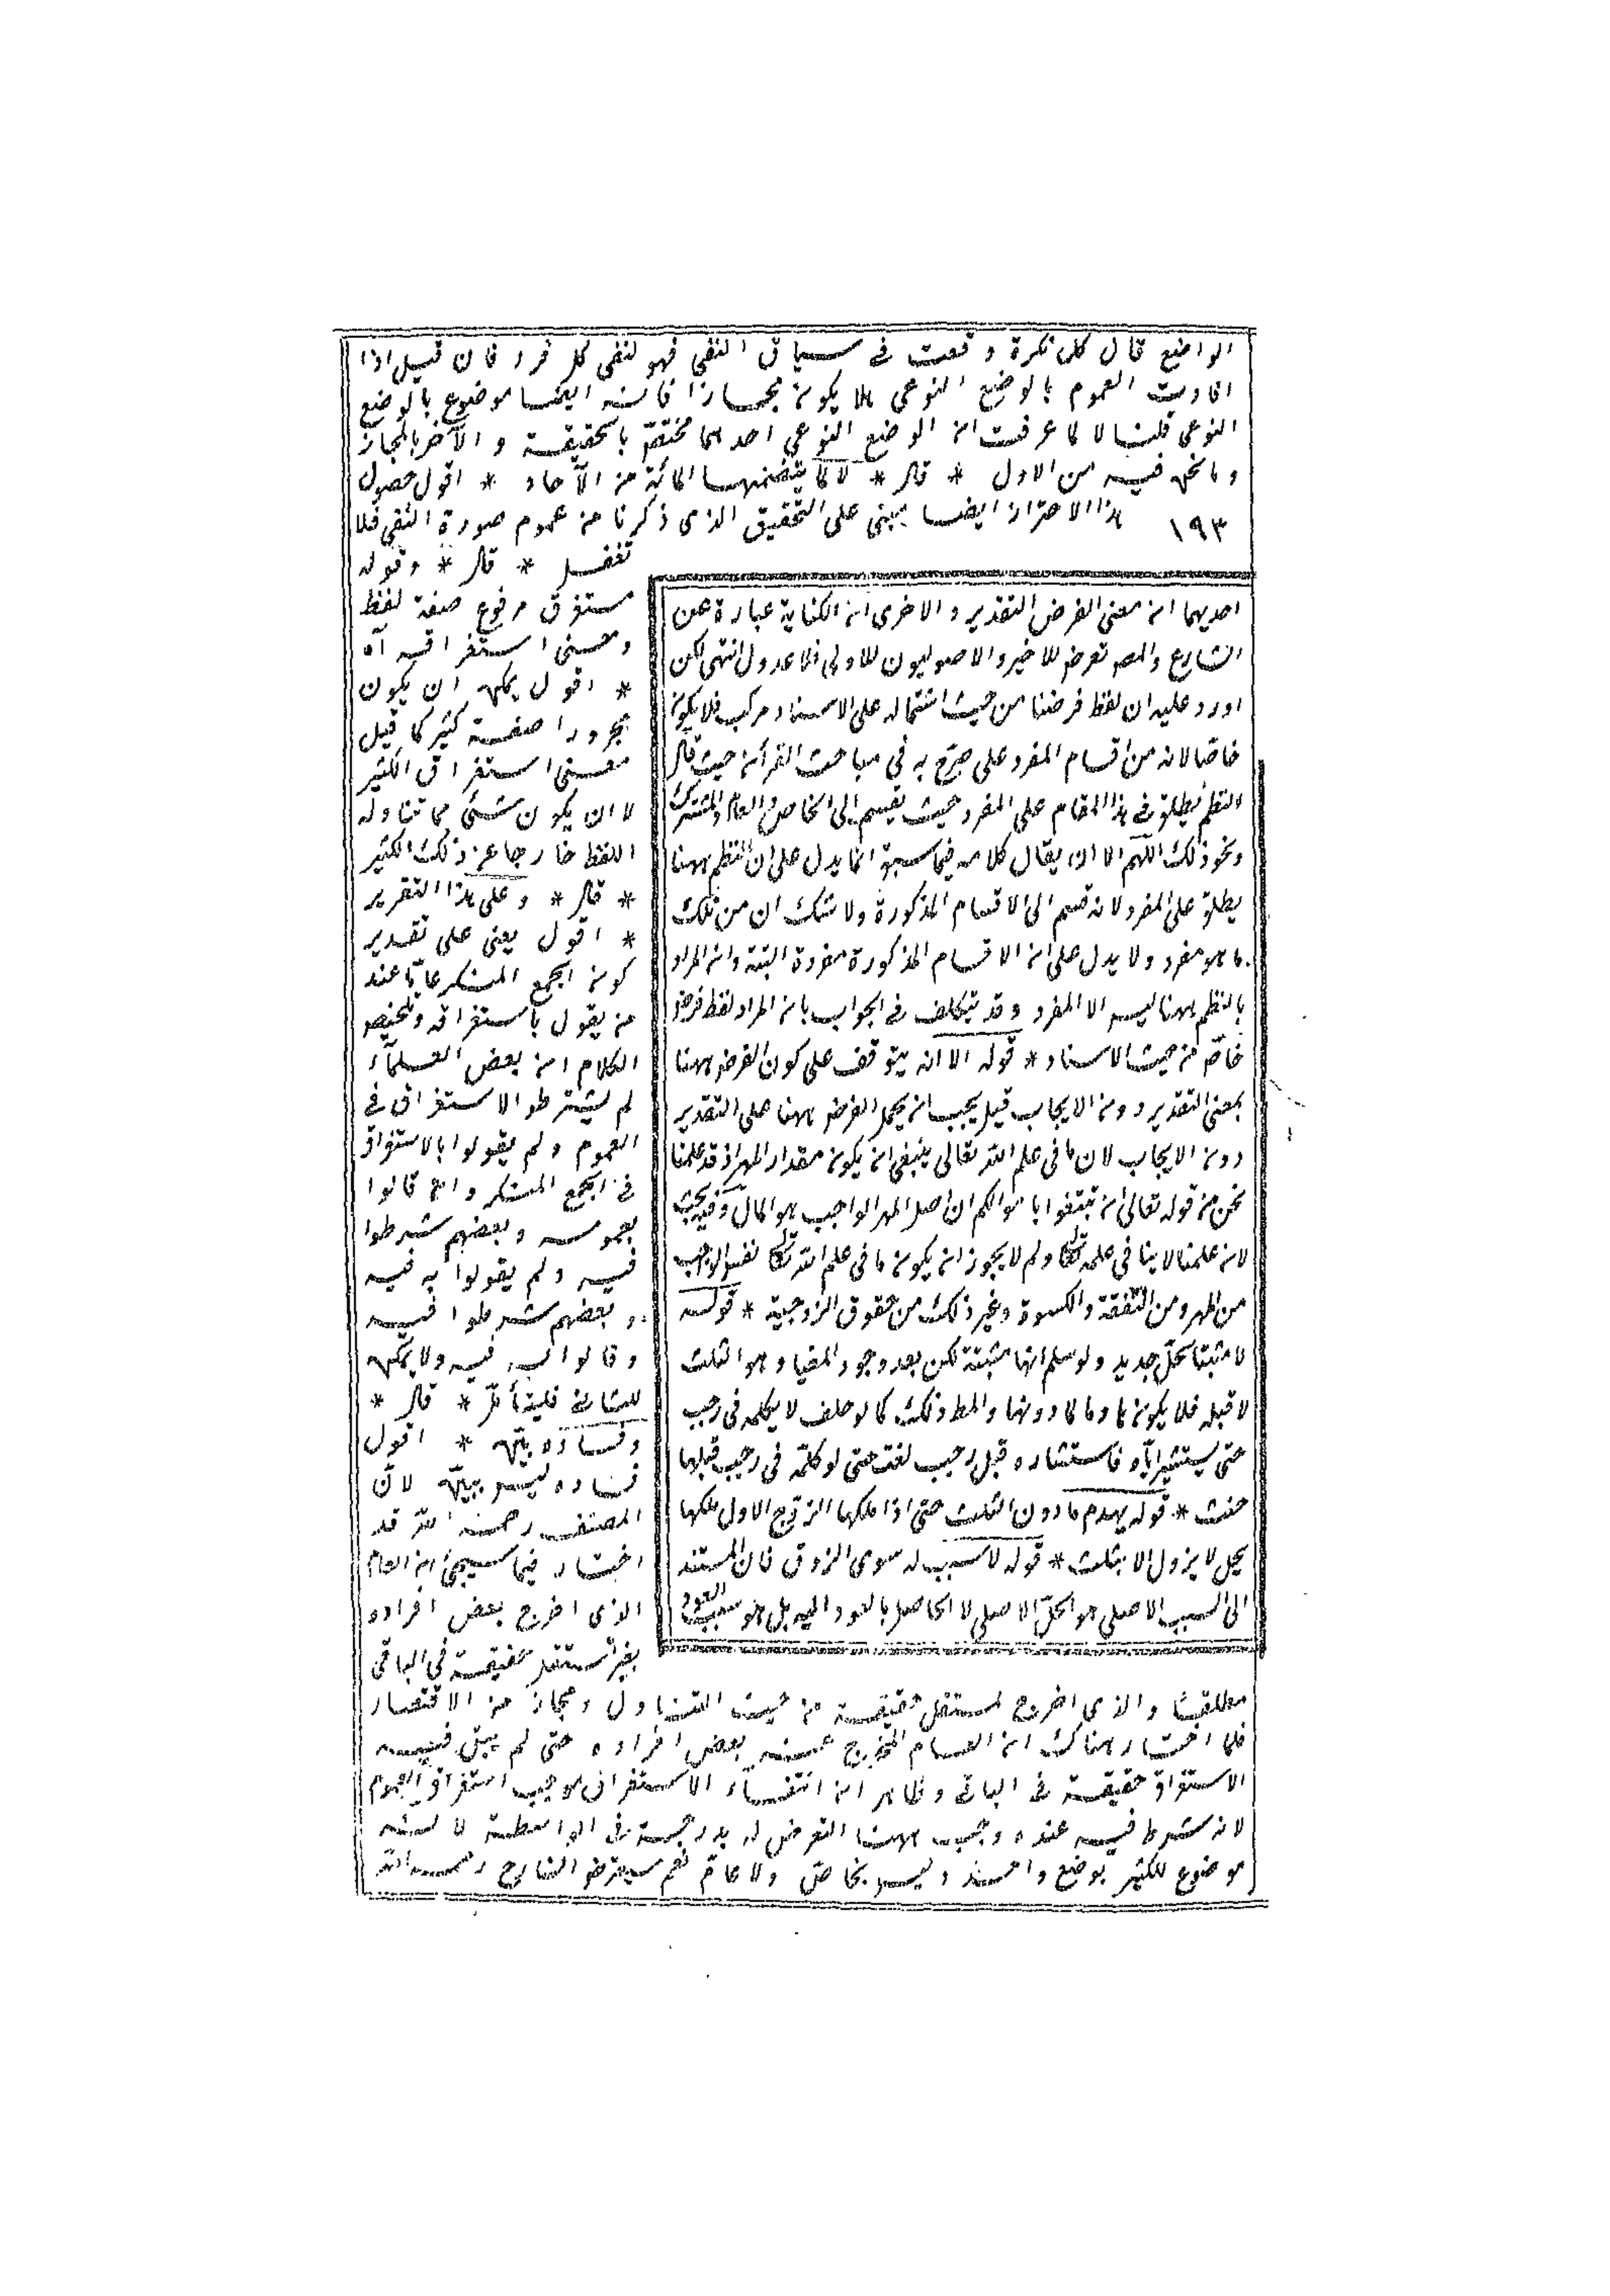 الواضع قال كل نكرة وقعت فى سياق النفى فهو لنفى كل فرد فان قيل اذا
افادت العموم بالوضع النوعى فلا يكون مجازا فانه ايضا موضوع بالوضع
النوعى قلنا لا لما عرفت ان الوضع النوعى احدهما مختصّ بالحقيقة و الآخر بالمجاز
وما نحن فيه من الاول * قال * لا لما يتضمنها المائة من الآحاد * اقول حصول
١٩٣ هذا الاحتراز ايضا مبنى على التحقيق الذى ذكرنا من عموم صورة النفى فلا
تغفل * قال * وقوله
مستغرق مرفوع صفة لفظ
ومعنى استغراقه آه
* اقول يمكن ان يكون
مجرورا صفة كثير كما قيل
معنى استغراق الكثير
لا ان يكون شئ مما تناوله
اللفظ خارجا عن ذلك الكثير
* قال * وعلى هذا التقرير
* اقول يعنى على تقدير
كون الجمع المنكر عامّا عند
من يقول باستغراقه وتلخيص
الكلام ان بعض العلمآء
لم يشترطوا الاستغراق فى
العموم ولم يقولوا بالاستغراق
فى الجمع المنكر وان قالوا
بعمومه وبعضهم شرطوا
فيه ولم يقولوا به فيه
وبعضهم شرطوا فيه
وقالوا به فيه ولا يمكن
فليتأمّل * قال *
وفساده بيّن * اقول
فساده ليس ببيّن لانّ
المصنف رحمه الله قد
اختار فيما سيجئ ان العام
الذى اخرج بعض افراده
بغير مستقل حقيقة فى الباقى
مطلقا والذى اخرج لمستقل حقيقة من حيث التناول ومجاز من الاقتصار
فلما اختار هناك ان العام المخرج عنه بعض افراده حتى لم يبق فيه
الاستغراق حقيقة فى الباقى وظاهر ان انتفآء الاستغراق يوجب العموم
لانه شرط فيه عنده وجب ههنا التعرض له بدرجة فى الواسطة لانه
موضوع للكثير بوضع واحد وليس بخاصّ ولا عامّ نعم سيعترض الشارح رحمه الله
احديهما ان معنى الفرض التقدير والاخرى ان الكناية عبارة عن
الشارع والمص تعرض للاخير والاصوليون للاولى فلا عدول انتهى لكن
اورد عليه ان لفظ فرضنا من حيث اشتماله على الاسناد مركب فلا يكون
خاصّا لانه من اقسام المفرد على صرّح به فى مباحث القرآن حيث قال
النظم يطلق فى هذا المقام على المفرد حيث تقسيم الى الخاص والعام والمشترك
ونحو ذلك اللّهم الا ان يقال كلامه فيما سبق انما يدل على ان النظم ههنا
يطلق على المفرد لانه قسم الى الاقسام المذكورة ولا شك ان من تلك
ما هو مفرد ولا يدل على ان الاقسام المذكورة مفردة البتة وان المراد
بالنظم ههنا ليس الا المفرد وقد يتكلف فى الجواب بان المراد لفظ فرض
خاصّ من حيث الاسناد * قوله الا انه يتوقف على كون الفرض ههنا
بمعنى التقدير دون الايجاب قيل يجب ان يحمل الفرض ههنا على التقدير
دون الايجاب لان ما فى علم الله تعالى ينبغى ان يكون مقدار المهر اذ قد علمنا
نحن من قوله تعالى ان تبتغوا باموالكم ان اصل المهر الواجب هو المال وفيه بحث
لان علمنا لا ينافى علمه تعالى ولم لا يجوز ان يكون ما فى علم الله تعالى نفس الواجب
من المهر ومن النّفقة والكسوة وغير ذلك من حقوق الزوجية * قوله
لا مثبتا لحلّ جديد ولو سلم انها مثبتة لكن بعد وجود المغيا وهو الثلث
لا قبله فلا يكون لما دونها والمط ذلك كما لو حلف لا يكلمه فى رجب
حتى يستشير اباه فاستشاره قبل رجب لغت حتى لو كلّمه فى رجب قبلها
حنث * قوله يهدم ما دون الثلث حتى اذا ملكها الزوّج الاول ملكها
بحل لا يزول الا بثلث * قوله لا سبب له سوى الزوق فان المستند
الى السبب الاصلى هو الحلّ الاصلى لا الحاصل بالعود اليه بل هو سبب العود